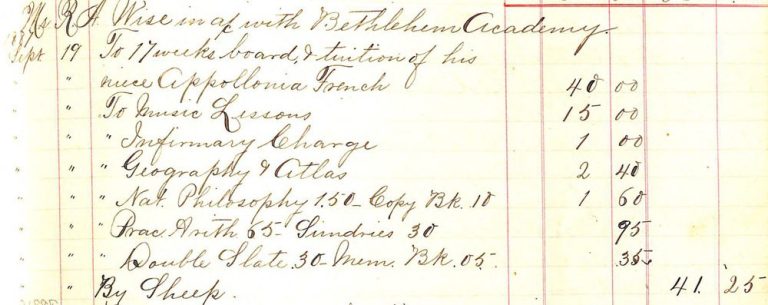 Mr. R. A. Wise in a/c with Bethlehem Academy.
Sept 19 To 17 weeks board & tuition of his
" " niece Appollonia French 40 00
" " To Music Lessons 15 00
" " " Infirmary Charge 1 00
" " " Geography & Atlas 2 40
" " " Nat. Philosophy 1.50 - Copy Bk. 10 1 60
" " " Prac. Arith 65 - Sundries 30 95
" " " Double Slate .30 - Mem. Bk. .05. 35
" " By Sheep. 41. 25